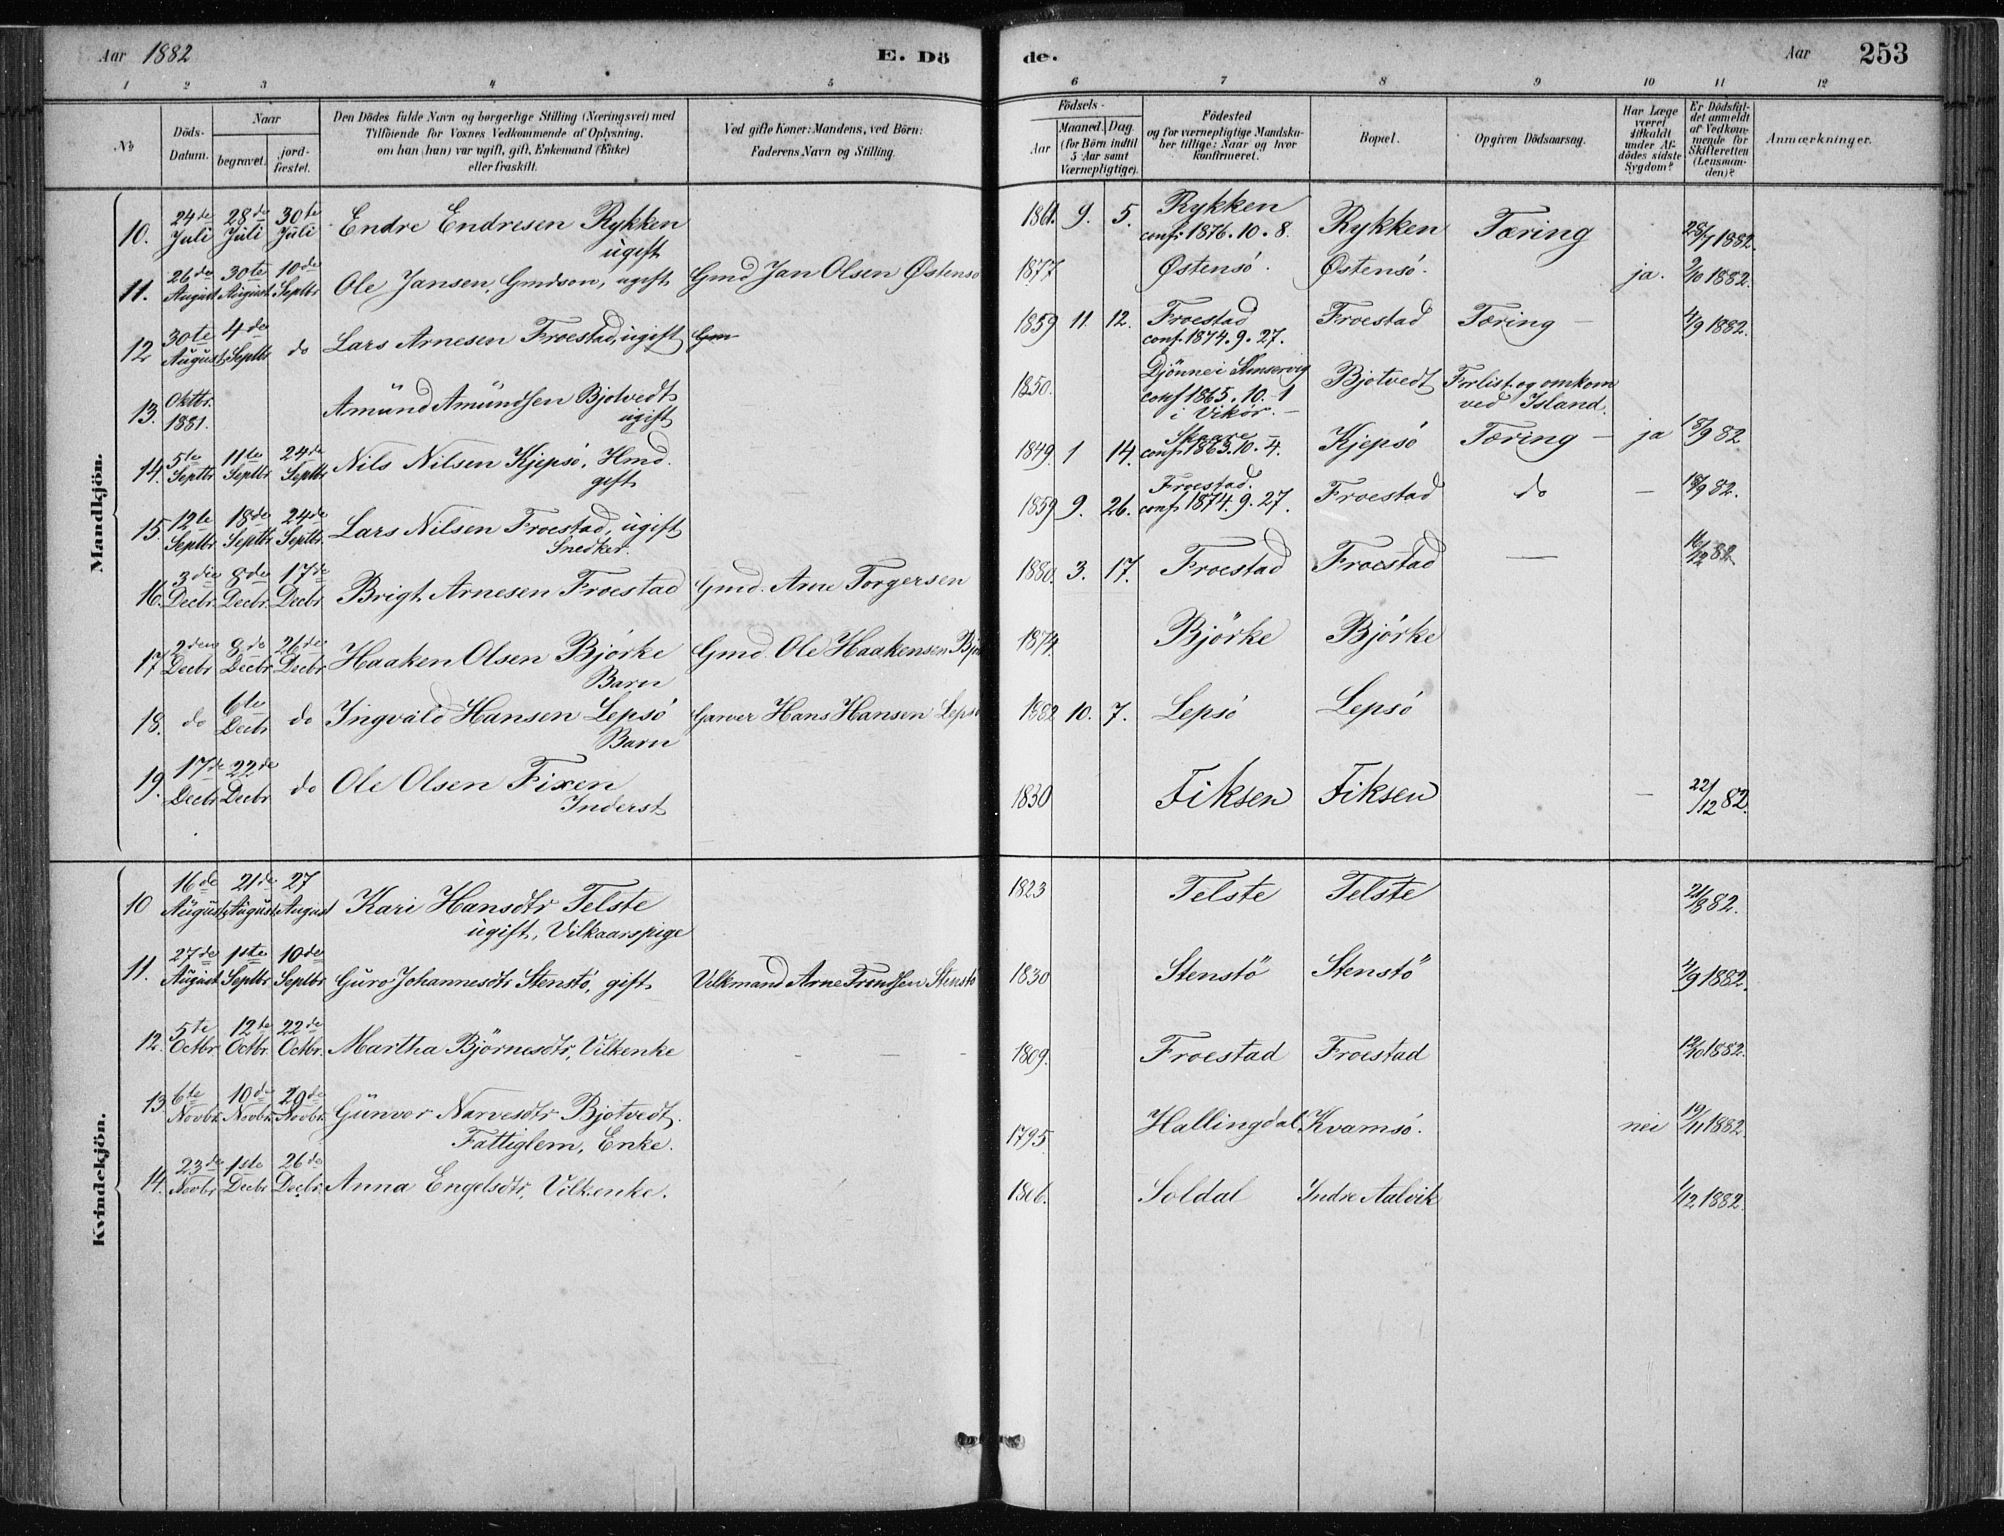 Aar 1882 E. Dö de. Aar 253
1 2 3 4 5 6 7 8 9 10 11 12
No
Döds-Datum.
Naar
begravet.
jord-fæstet.
Den Dödes fulde Navn og borgerlige Stilling (Næringsvei) med
Tilföiende for Voxnes Vedkommende af Oplysning,
om han (hun) var ugift, gift, Enkemand (Enke)
eller fraskilt.
Ved gifte Koner: Mandens, ved Börn:
Faderens Navn og Stilling.
Födsels-
Aar Maaned. Dag.
(for Börn indtil
5 Aar samt
Værnepligtige).
Födested
og for værnepligtige Mandska-
ber tillige: Naar og hvor
konfirmeret.
Bopæl.
Opgiven Dödsaarsag.
Har Læge
været
tilkaldt
under Af-
dödes sidste
Sygdom?
Er Dödsfal-
det anmeldt
af Vedkom-
mende for
Skifteretten
(Lensman-
den)?
Anmærkninger.
Mandkjön.
10. 24de Juli 28de Juli 30te Juli Endre Endresen Rykken ugift 1861. 9. 5. Rykken conf: 1876.10.8. Rykken Tæring 28/7 1882.
11. 26de August 30te August 10de Septbr Ole Jansen, Gmdson, ugift Gmd Jan Olsen Østensö 1877 Østensö. Østensö. ja. 2/10 1882.
12 30te August 4de Septbr do Lars Arnesen Froestad, ugift Gm 1859 11. 12. Froestad conf. 1874.9.27. Froestad Tæring – 4/9 1882.
13. Oktbr. 1881. Amünd Amündsen Bjotvedt ugift 1850. Djönnei conf 1865.10.1 i Vikör. – Bjotvedt Forlist og omkom ved Island.
14. 5te Septbr 11te Septbr 24de Septbr Nils Nilsen Kjepsö, Hmd. gift 1849. 1 14. Skaare conf. 1863.10.4. Kjepsö Tæring – ja 18/9 82
15. 12te Septbr 18de Septbr 24de Septbr. Lars Nilsen Froestad, ugift Snedker. 1859 9. 26. Froestad. conf 1874.9.27. Froestad do – 18/9 82.
16. 3die Decbr. 8de Decbr. 17de Decbr Brigt Arnesen Froestad Gmd. Arne Torgersen 1880. 3. 17. Froestad Froestad – 16/12 82
17 2den Decbr 8de Decbr 26de Decbr Haaken Olsen Björke Barn Gmd. Ole Haakensen 1874. Björke Björke
18. do 6te Decbr do Ingvald Hansen Lepsö Barn Garver Hans Hansen Lepsö 1882 10. 7. Lepsö Lepsö
19. 17de Decbr 22de Decbr do Ole Olsen Fixen Inderst 1830 Fiksen Fiksen – 22/12 82.
Kvindekjön.
10 16de August 21de August 27 August Kari Hansdtr Telste ugift, Vilkaarspige 1823 Telste Telste 21/8 82.
11. 27de August 1ste Septbr 10de Septbr Guro Johannesdtr Stenstö, gift Vilkmand Arne Trondsen Stenstö 1830 Stenstö Stenstö 4/9 1882.
12. 5te Octbr 12te Octbr 22de Octbr. Martha Björnesdtr, Vilkenke – – – 1809. Froestad Froestad 12/10 1882.
13 6te Novbr. 10de Novbr. 20de Novbr. Günvor Narvesdtr Bjotvedt. Fattiglem, Enke. 1795. Hallingdal Kvamsö. nei 19/11 1882.
14. 23de Novbr 1ste Decbr 26de Decbr. Anna Engelsdtr, Vilkenke. 1806. Soldal Indre Aalvik 1/12 1882.